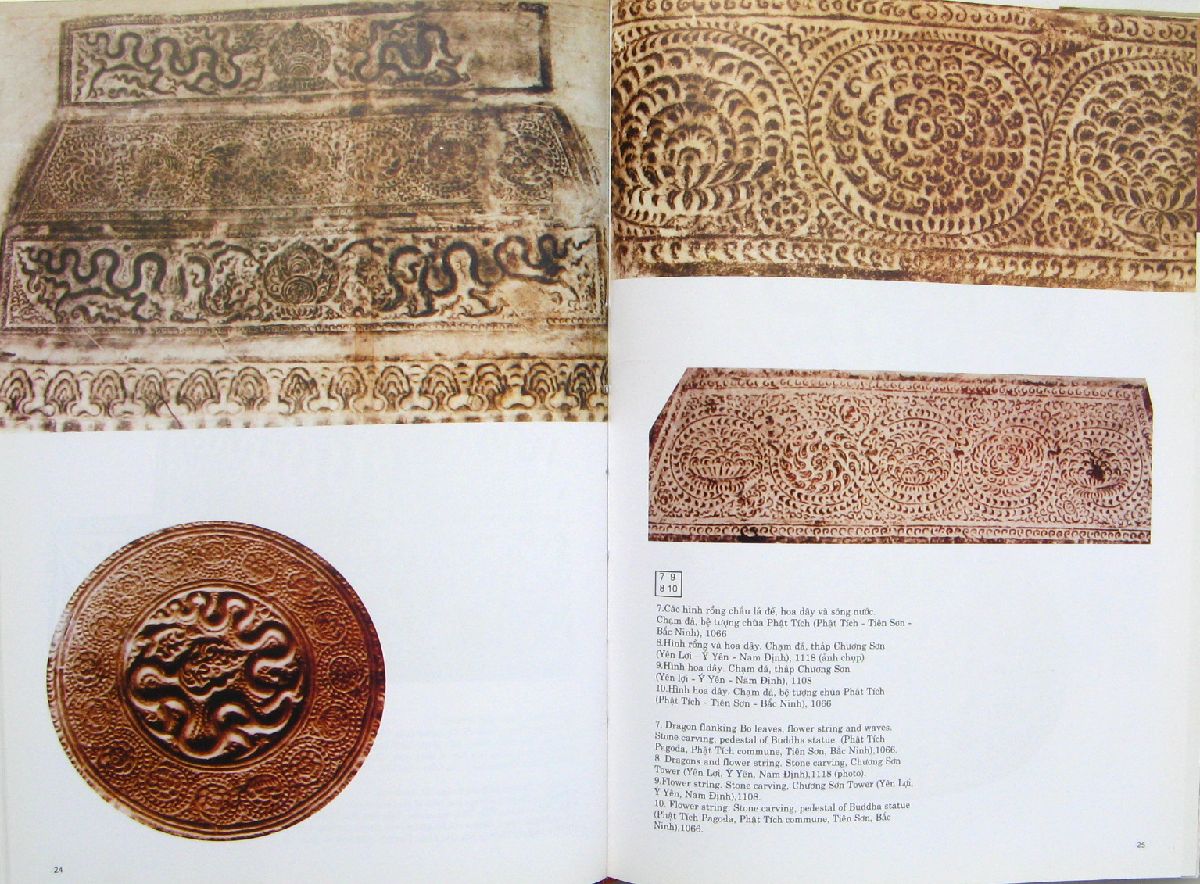 7 9
8 10
7.Các hình rồng chầu lá đề, hoa dây và sóng nước.
Chạm đá, bệ tượng chùa Phật Tích (Phật Tích - Tiên Sơn -
Bắc Ninh), 1066
8.Hình rồng và hoa dây. Chạm đá, tháp Chương Sơn
(Yên Lợi - Ý Yên - Nam Định), 1118 (ảnh chụp)
9.Hình hoa dây. Chạm đá, tháp Chương Sơn
(Yên lợi - Ý Yên - Nam Định), 1108
10.Hình hoa dây. Chạm đá, bệ tượng chùa Phật Tích
(Phật Tích - Tiên Sơn - Bắc Ninh), 1066
7. Dragon flanking Bo leaves, flower string and waves.
Stone carving, pedestal of Buddha statue (Phật Tích
Pagoda, Phật Tích commune, Tiên Sơn, Bắc Ninh),1066.
8. Dragons and flower string. Stone carving, Chương Sơn
Tower (Yên Lợi, Ý Yên, Nam Định),1118 (photo).
9.Flower string. Stone carving, Chương Sơn Tower (Yên Lợi,
Ý Yên, Nam Định),1108.
10. Flower string. Stone carving, pedestal of Buddha statue
(Phật Tích Pagoda, Phật Tích commune, Tiên Sơn, Bắc
Ninh),1066.
24
25